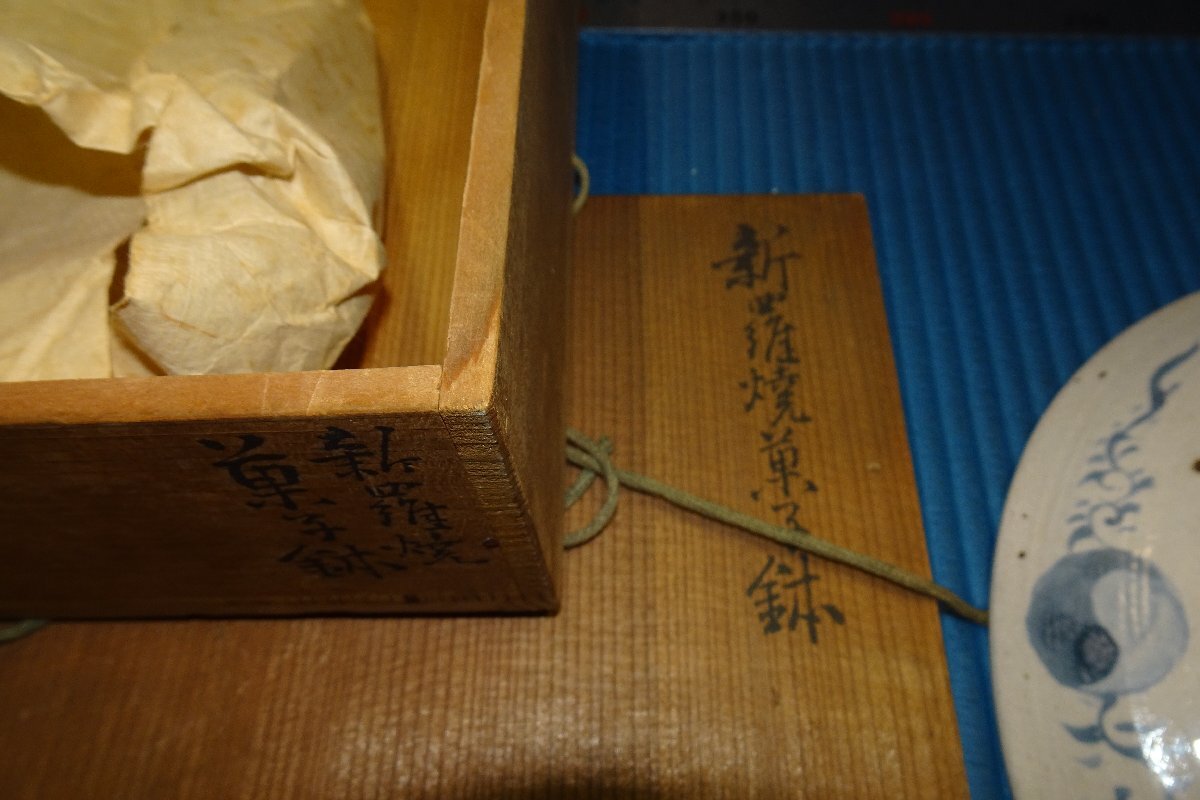 新羅焼菓子鉢
新羅焼
菓子鉢